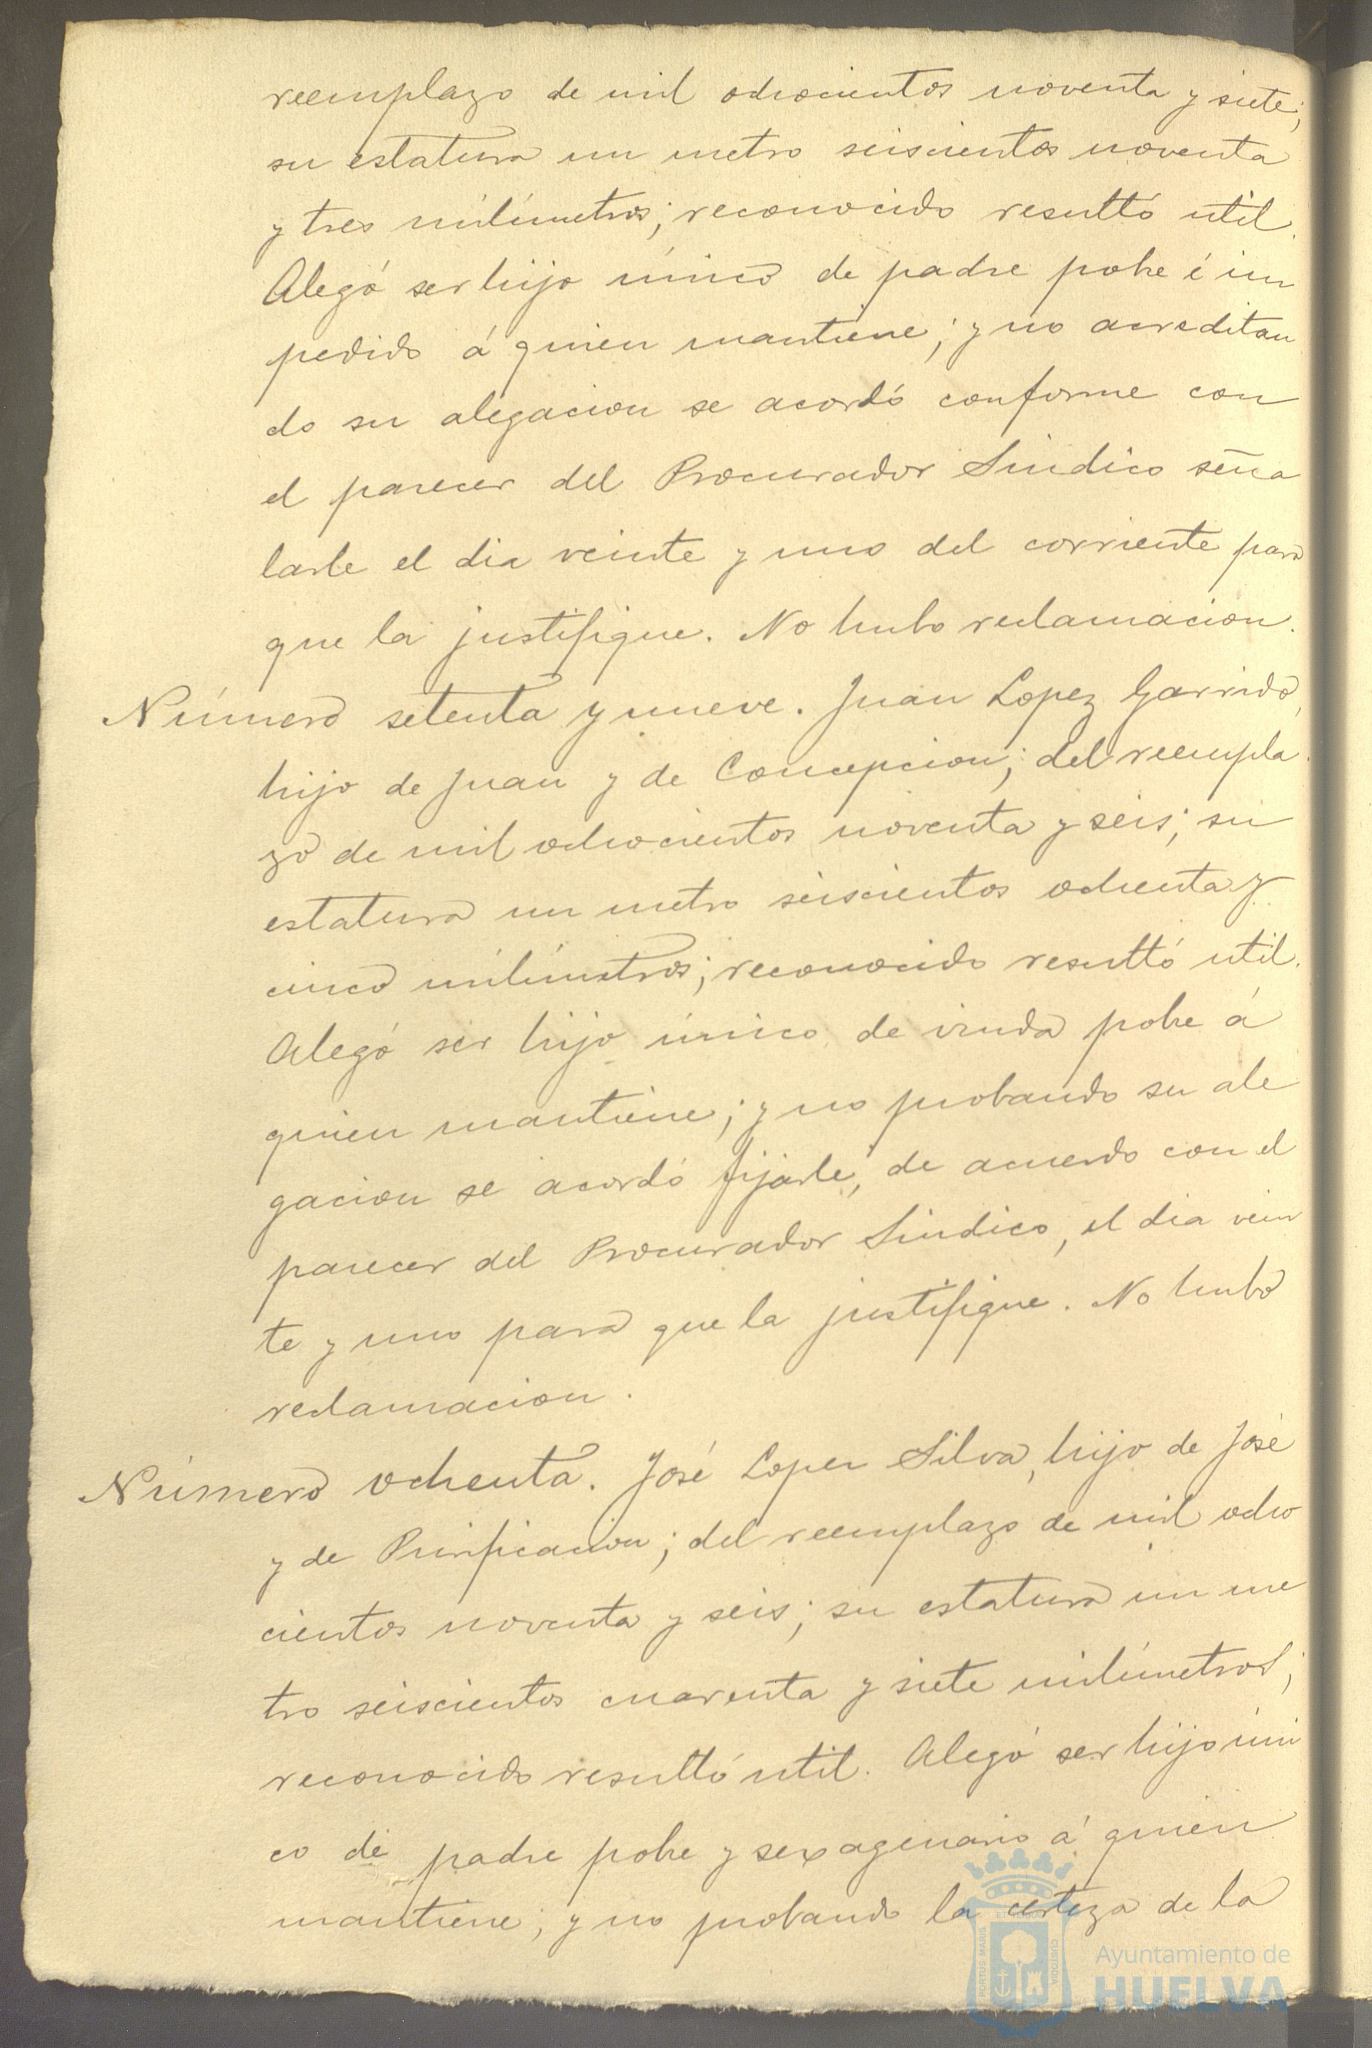 reemplazo de mil ochocientos noventa y siete;
su estatura un metro seiscientos noventa
y tres milímetros; reconocido resultó util.
Alegó ser hijo único de padre pobre é im
pedido á quien mantiene; y no acreditan
do su alegacion se acordó conforme con
el parecer del Procurador Sindico seña
larle el dia veinte y uno del corriente para
que la justifique. No hubo reclamacion.
Número setenta y nueve. Juan Lopez Garrido,
hijo de Juan y de Concepcion; del reempla
zo de mil ochocientos noventa y seis; su
estatura un metro seiscientos ochenta y
cinco milímetros; reconocido resultó util.
Alegó ser hijo único de viuda pobre á
quien mantiene; y no probando su ale
gacion se acordó fijarle, de acuerdo con el
parecer del Procurador Sindico, el dia vein
te y uno para que la justifique. No hubo
reclamacion.
Número ochenta. José Lopez Silva, hijo de José
y de Purificacion; del reemplazo de mil ocho
cientos noventa y seis; su estatura un me
tro seiscientos cuarenta y siete milímetros;
reconocido resultó util. Alegó ser hijo úni
co de padre pobre y sexagenario á quien
mantiene; y no probando la certeza de la
PORTUS MARIS ET TERRAE CUSTODIA
Ayuntamiento de
HUELVA